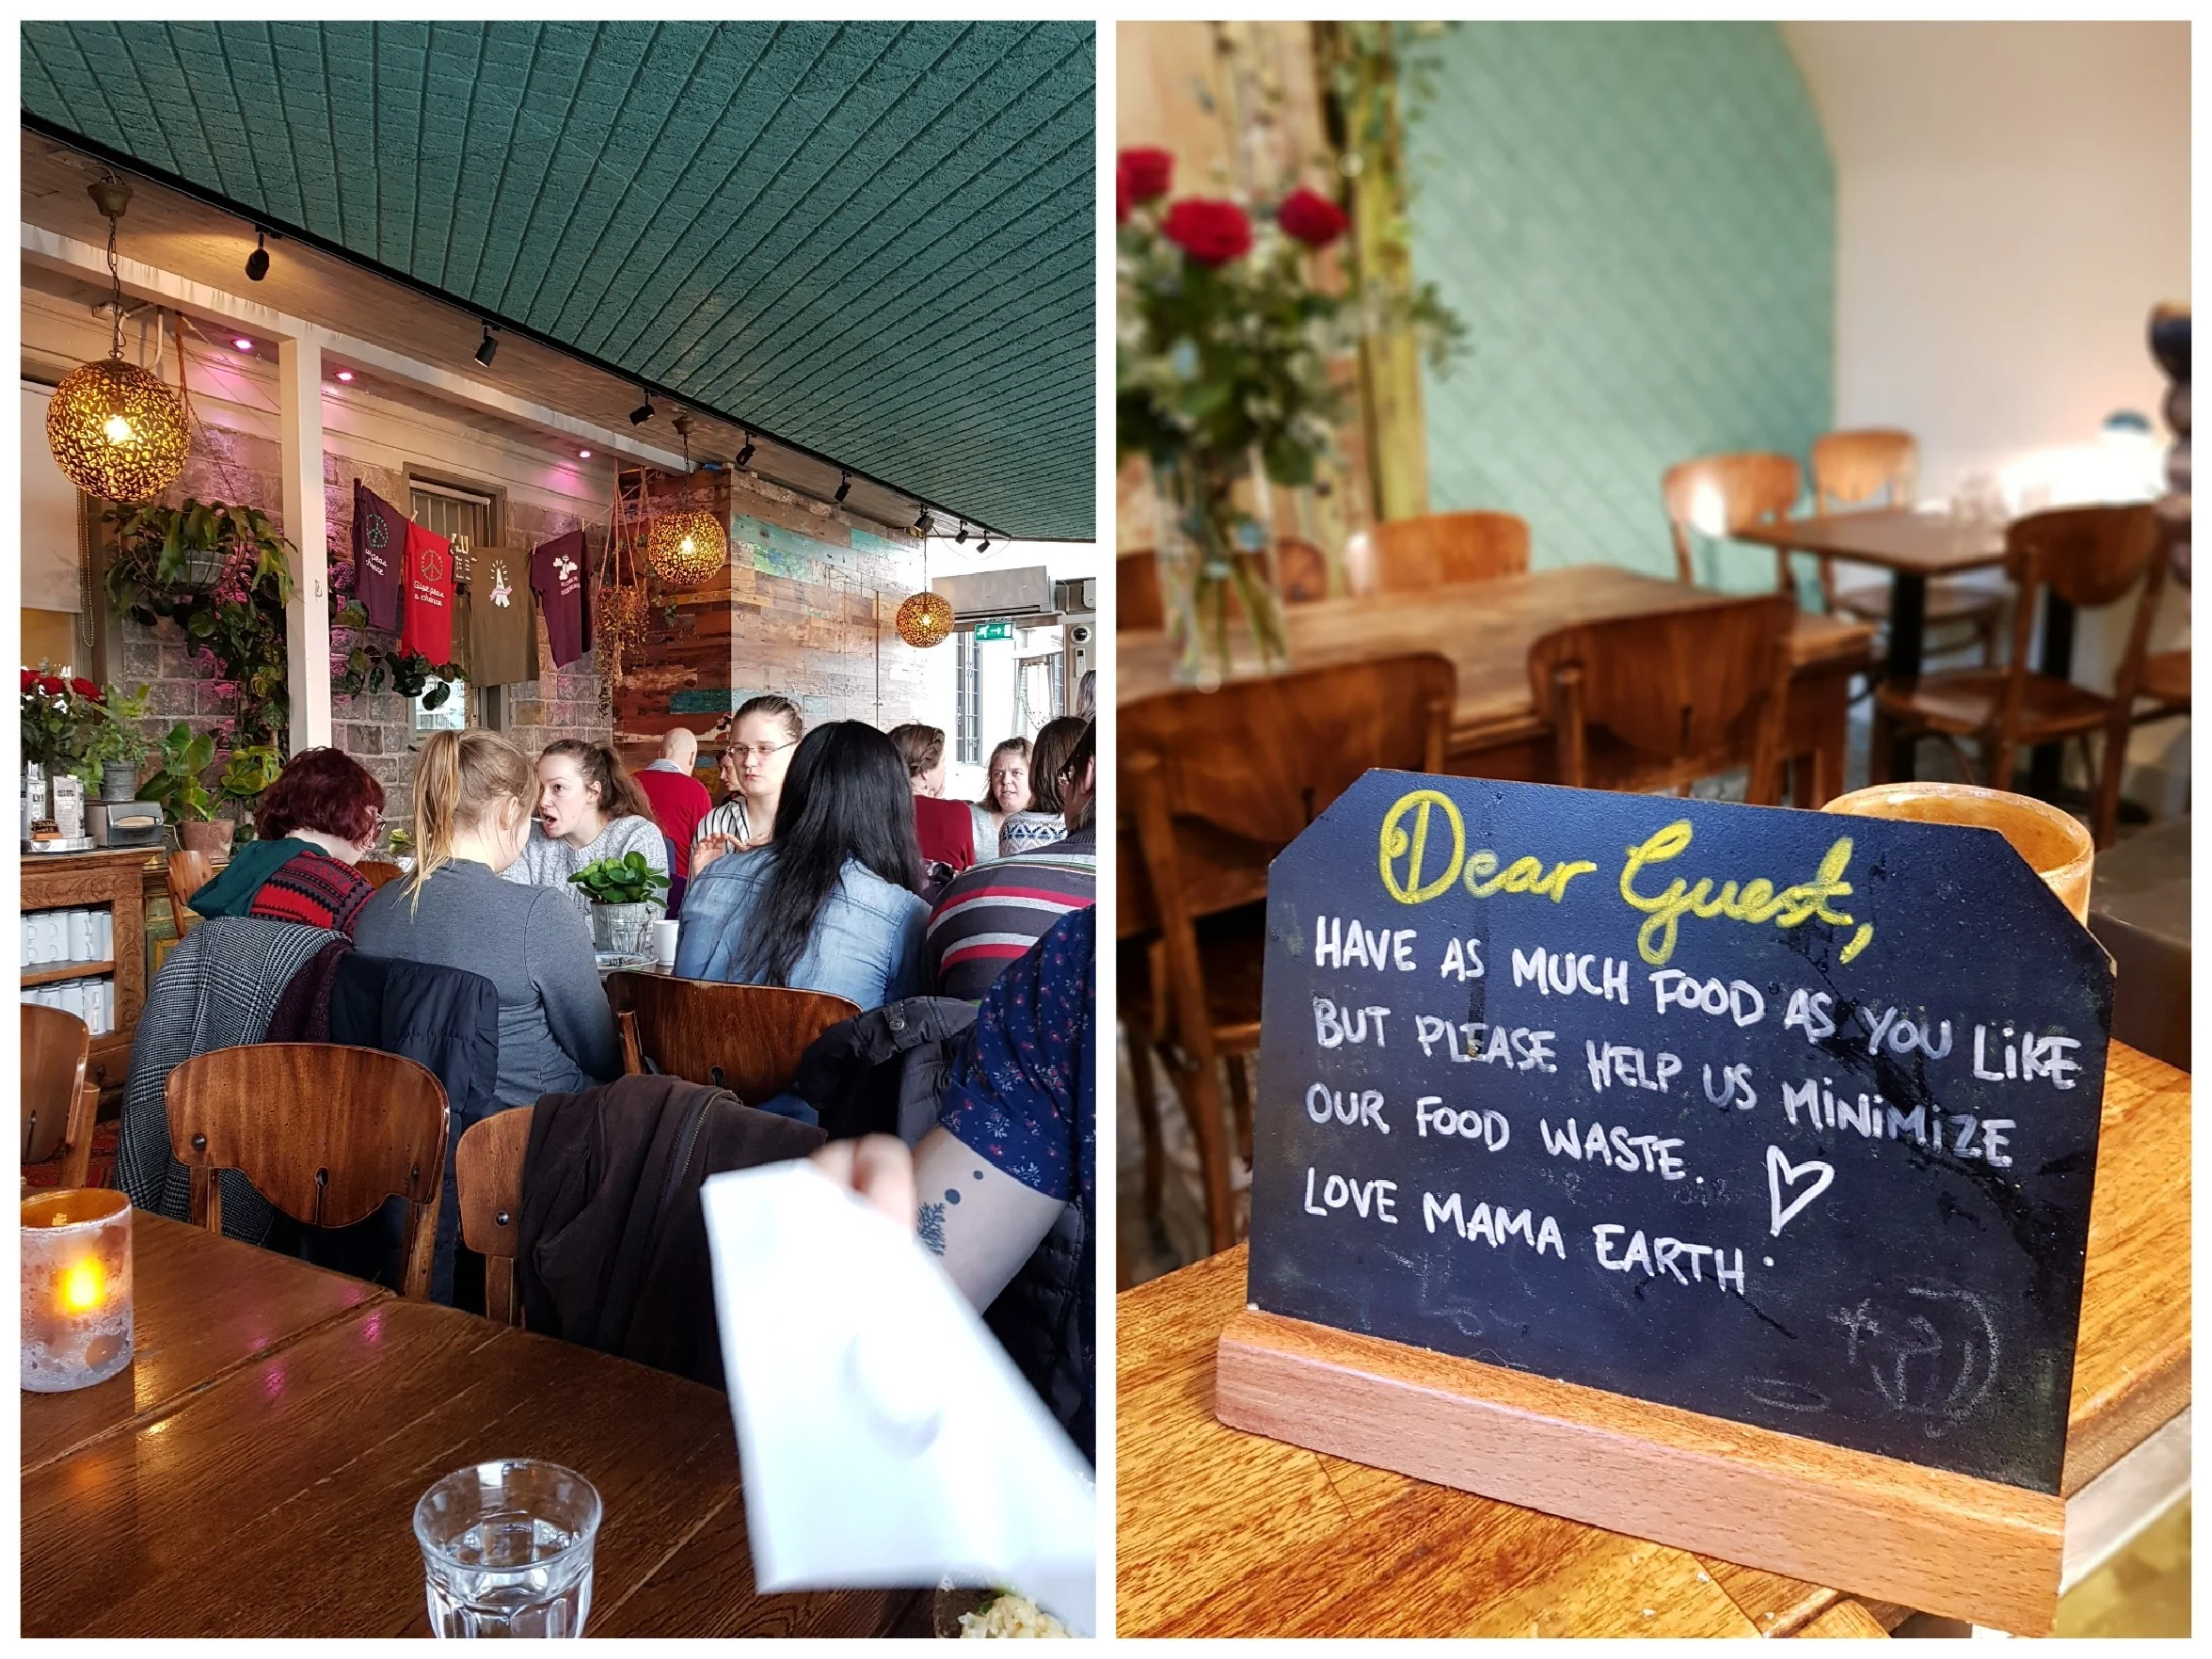 Give peas
a chance
Dear Guest,
HAVE AS MUCH FOOD AS YOU LIKE
BUT PLEASE HELP US MINIMIZE
OUR FOOD WASTE.
LOVE MAMA EARTH.